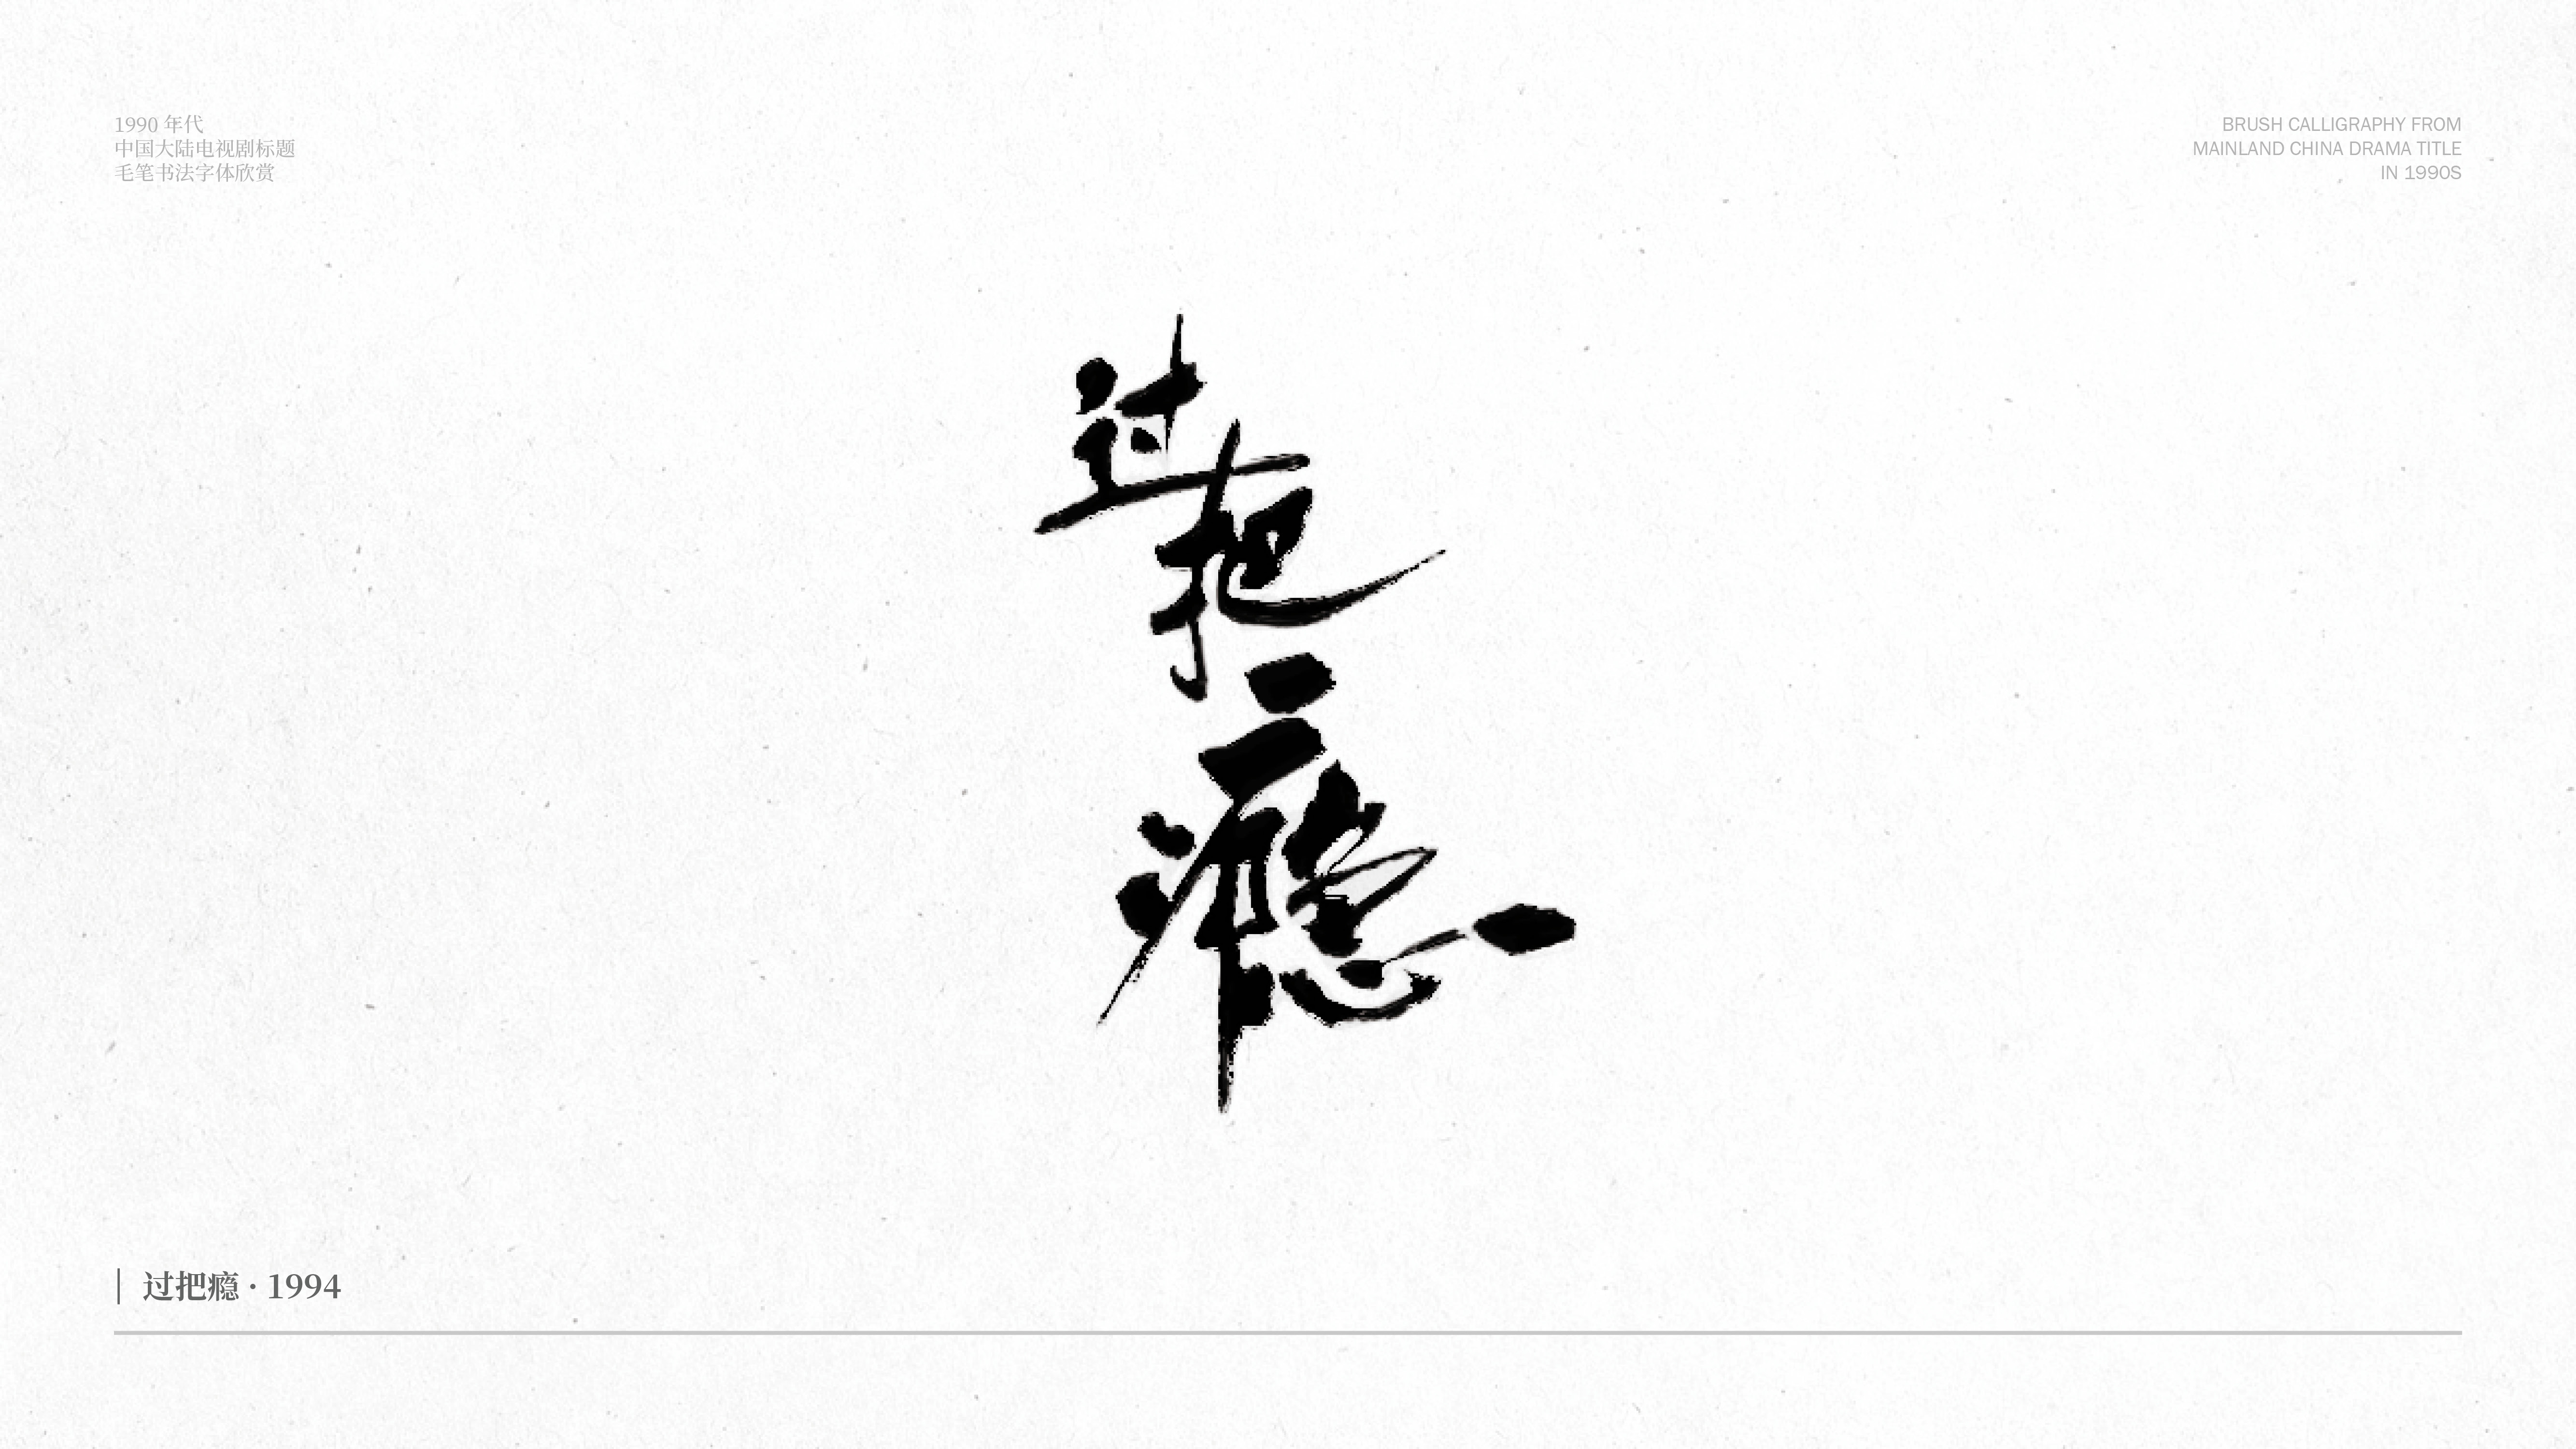 1990 年代
中国大陆电视剧标题
毛笔书法字体欣赏
BRUSH CALLIGRAPHY FROM
MAINLAND CHINA DRAMA TITLE
IN 1990S
过
把
瘾
过把瘾 · 1994